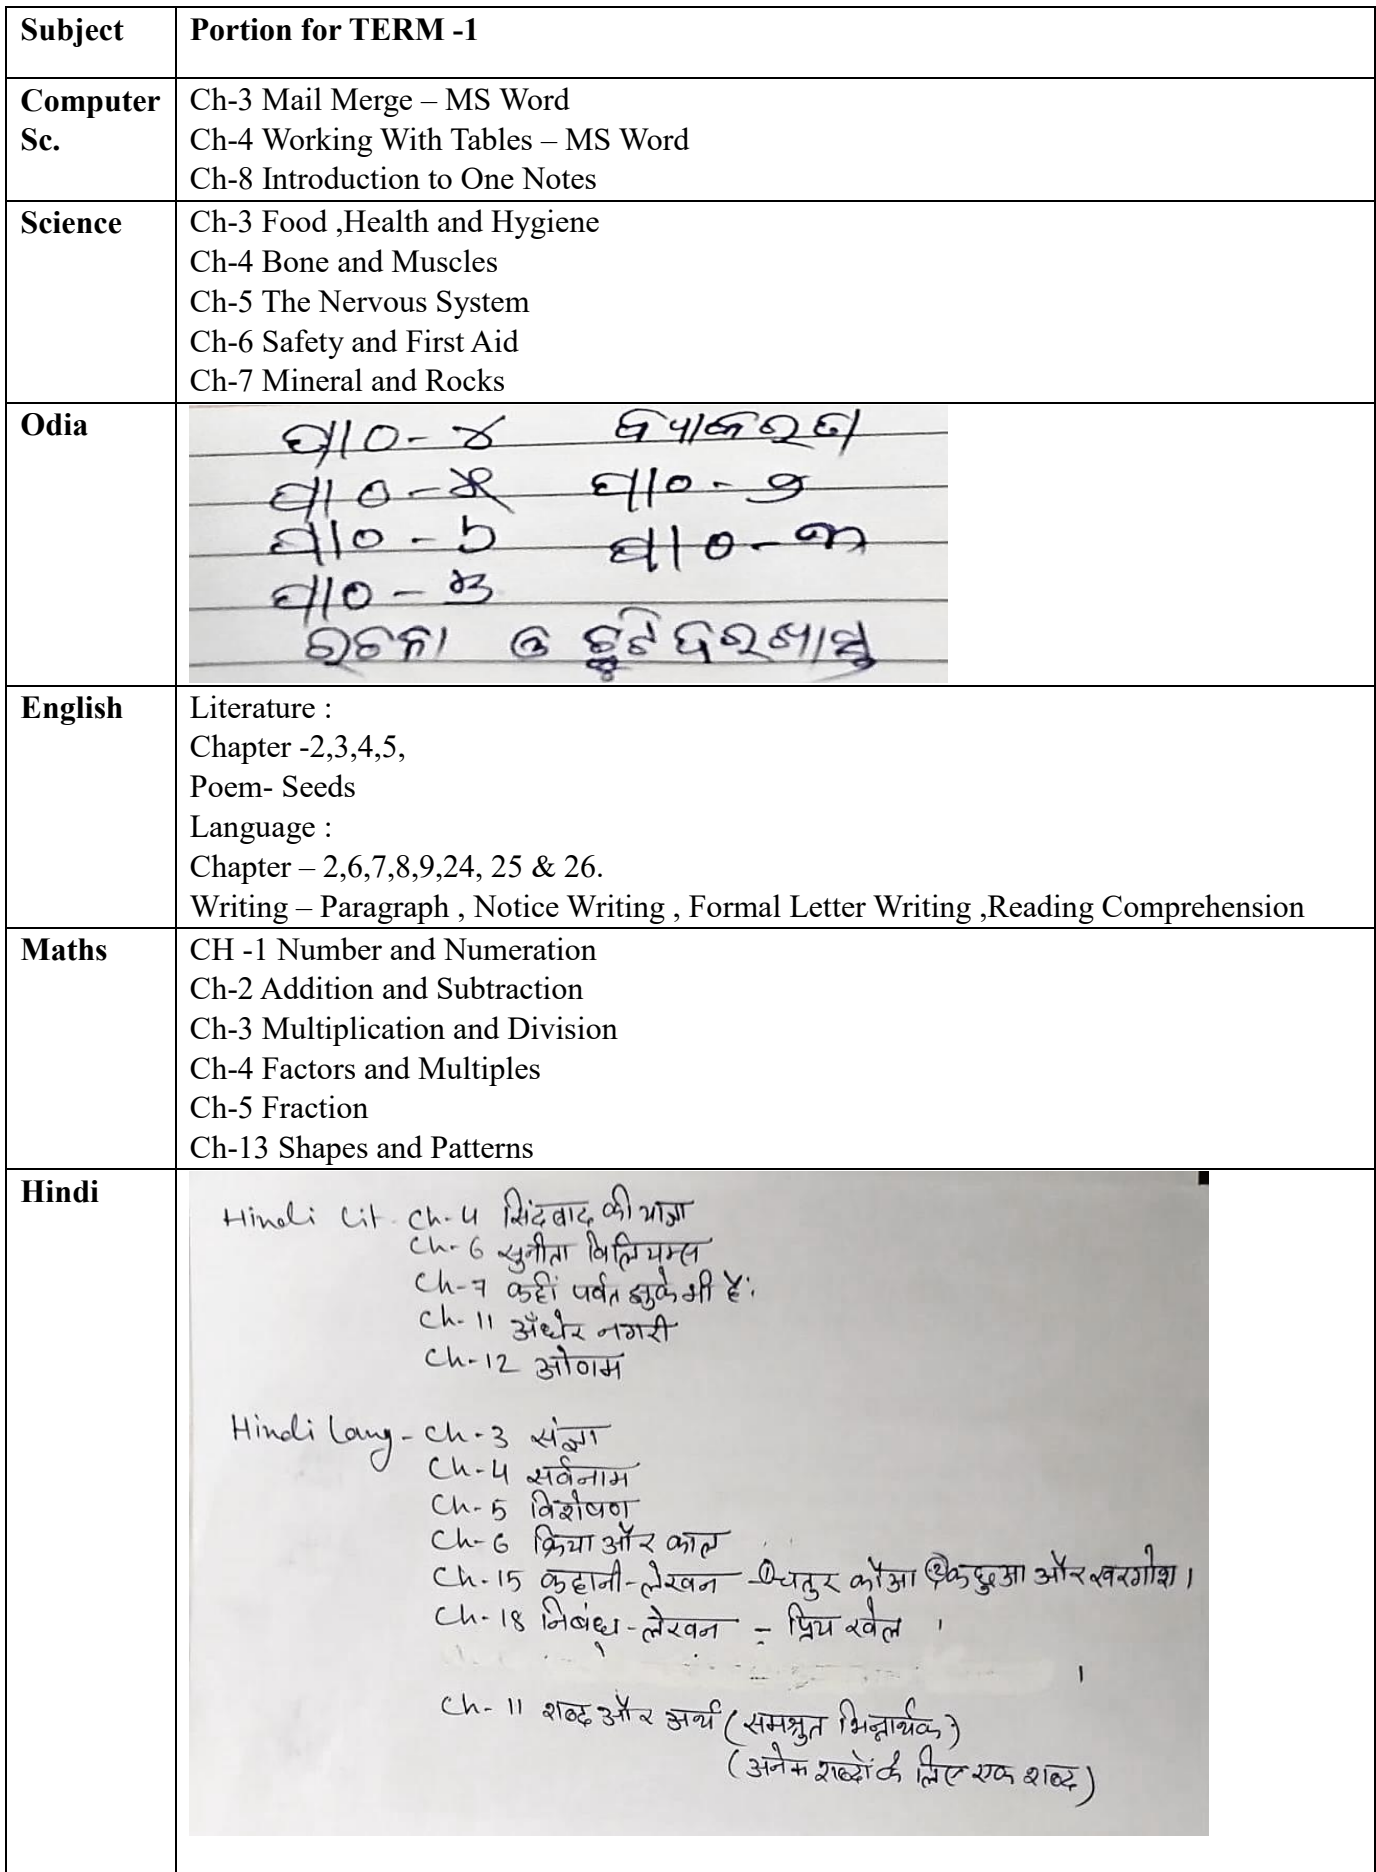 Subject Portion for TERM -1
Computer Sc. Ch-3 Mail Merge – MS Word
Ch-4 Working With Tables – MS Word
Ch-8 Introduction to One Notes
Science Ch-3 Food ,Health and Hygiene
Ch-4 Bone and Muscles
Ch-5 The Nervous System
Ch-6 Safety and First Aid
Ch-7 Mineral and Rocks
Odia ପାଠ - ୪ ବ୍ୟାକରଣ
ପାଠ - ୫ ପାଠ - ୨
ପାଠ - ୭ ପାଠ - ୩
ପାଠ -
ରଚନା ଓ ଛୁଟି ଦରଖାସ୍ତ
English Literature :
Chapter -2,3,4,5,
Poem- Seeds
Language :
Chapter – 2,6,7,8,9,24, 25 & 26.
Writing – Paragraph , Notice Writing , Formal Letter Writing ,Reading Comprehension
Maths CH -1 Number and Numeration
Ch-2 Addition and Subtraction
Ch-3 Multiplication and Division
Ch-4 Factors and Multiples
Ch-5 Fraction
Ch-13 Shapes and Patterns
Hindi Hindi Lit- Ch-4 सिंदबाद की यात्रा
Ch-6 सुनीता विलियम्स
Ch-7 कहीं पर्वत झुके भी हैं।
Ch-11 अँधेर नगरी
Ch-12 ओणम
Hindi Lang - Ch-3 संज्ञा
Ch-4 सर्वनाम
Ch-5 विशेषण
Ch-6 क्रिया और काल
Ch-15 कहानी-लेखन - ① चतुर कौआ ② कछुआ और खरगोश।
Ch-18 निबंध-लेखन - प्रिय खेल ।
Ch-11 शब्द और अर्थ (समश्रुत भिन्नार्थक)
(अनेक शब्दों के लिए एक शब्द)